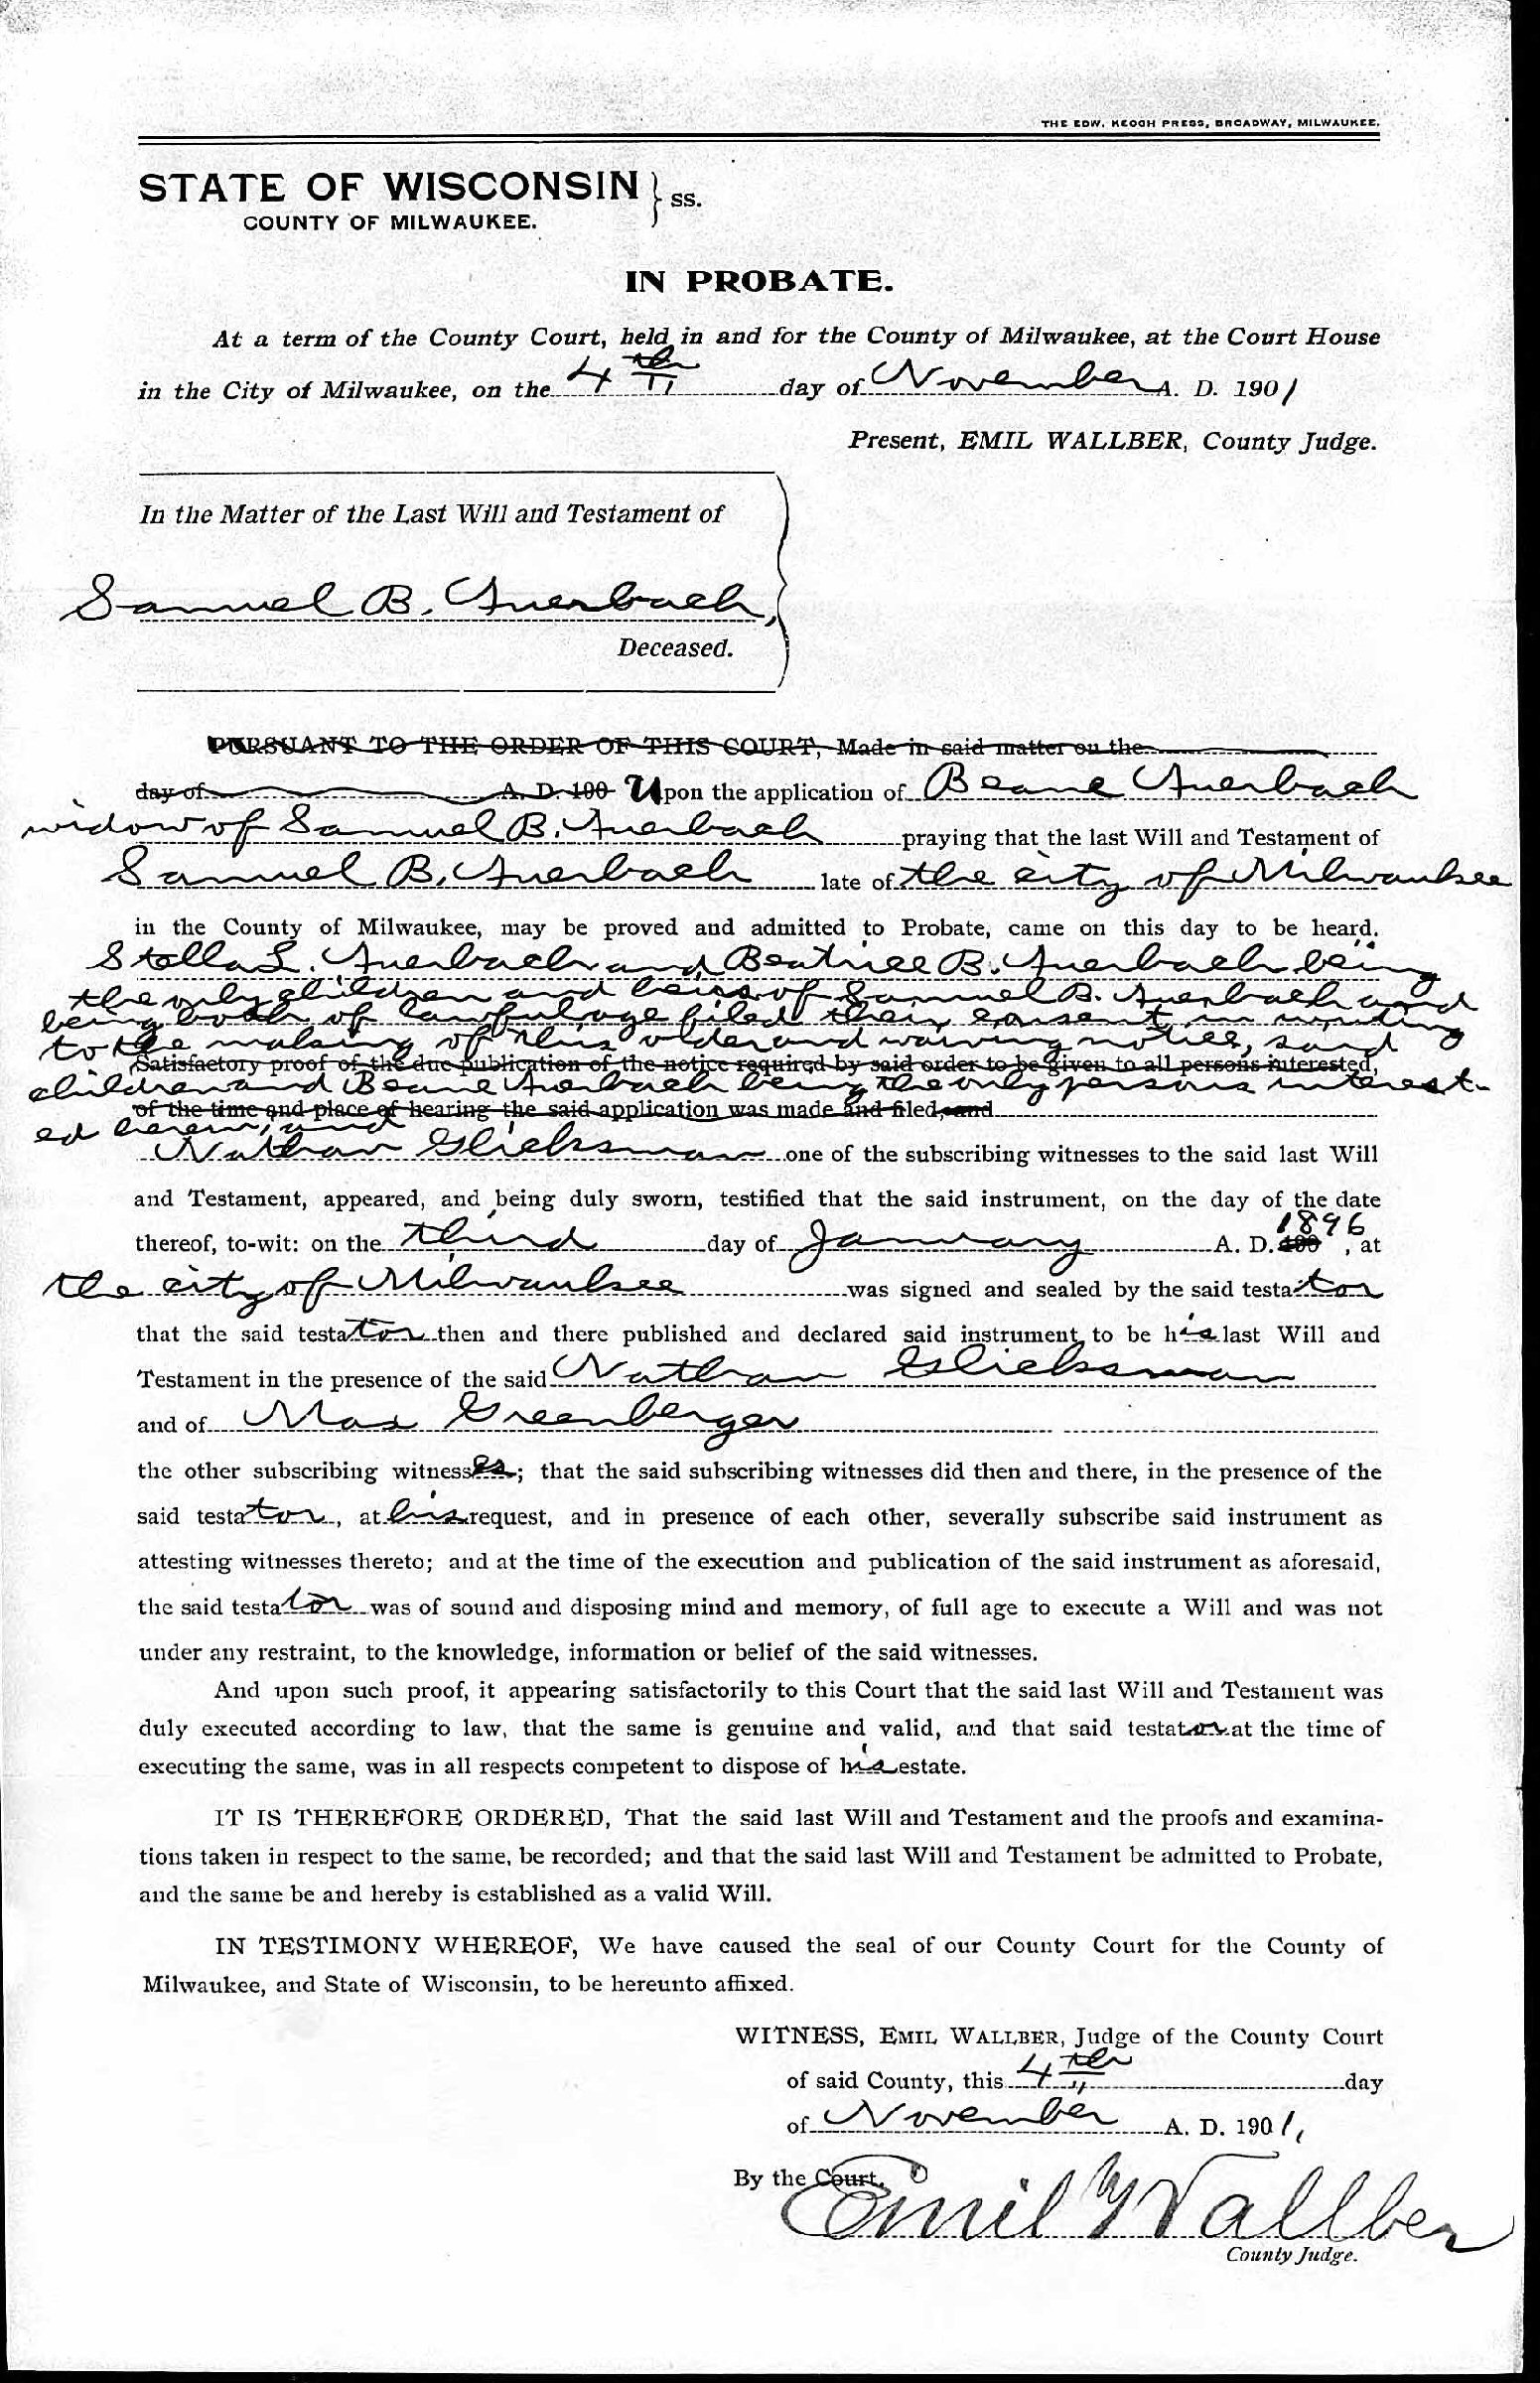 THE EDW. KEOGH PRESS, BROADWAY, MILWAUKEE.
STATE OF WISCONSIN } ss.
COUNTY OF MILWAUKEE.
IN PROBATE.
At a term of the County Court, held in and for the County of Milwaukee, at the Court House
in the City of Milwaukee, on the 4th day of November A. D. 1901
Present, EMIL WALLBER, County Judge.
In the Matter of the Last Will and Testament of
Samuel B. Auerbach,
Deceased.
PURSUANT TO THE ORDER OF THIS COURT, Made in said matter on the
day of A. D. 190 Upon the application of Beane Auerbach
widow of Samuel B. Auerbach praying that the last Will and Testament of
Samuel B. Auerbach late of the city of Milwaukee
in the County of Milwaukee, may be proved and admitted to Probate, came on this day to be heard.
Stella L. Auerbach and Beatrice B. Auerbach being
the only children and heirs of Samuel B. Auerbach and
being both of lawful age filed their consent in writing
to the making of this order and waiving notice, said
Satisfactory proof of the due publication of the notice required by said order to be given to all persons interested,
children and Beane Auerbach being the only persons interest-
of the time and place of hearing the said application was made and filed, and
ed herein, and
Nathan Glicksman one of the subscribing witnesses to the said last Will
and Testament, appeared, and being duly sworn, testified that the said instrument, on the day of the date
thereof, to-wit: on the third day of January A. D. 190 1896, at
the city of Milwaukee was signed and sealed by the said testator
that the said testator then and there published and declared said instrument to be his last Will and
Testament in the presence of the said Nathan Glicksman
and of Max Greenberger
the other subscribing witnesses; that the said subscribing witnesses did then and there, in the presence of the
said testator, at his request, and in presence of each other, severally subscribe said instrument as
attesting witnesses thereto; and at the time of the execution and publication of the said instrument as aforesaid,
the said testator was of sound and disposing mind and memory, of full age to execute a Will and was not
under any restraint, to the knowledge, information or belief of the said witnesses.
And upon such proof, it appearing satisfactorily to this Court that the said last Will and Testament was
duly executed according to law, that the same is genuine and valid, and that said testator at the time of
executing the same, was in all respects competent to dispose of his estate.
IT IS THEREFORE ORDERED, That the said last Will and Testament and the proofs and examina-
tions taken in respect to the same, be recorded; and that the said last Will and Testament be admitted to Probate,
and the same be and hereby is established as a valid Will.
IN TESTIMONY WHEREOF, We have caused the seal of our County Court for the County of
Milwaukee, and State of Wisconsin, to be hereunto affixed.
WITNESS, EMIL WALLBER, Judge of the County Court
of said County, this 4th day
of November A. D. 1901,
By the Court,
Emil Wallber
County Judge.